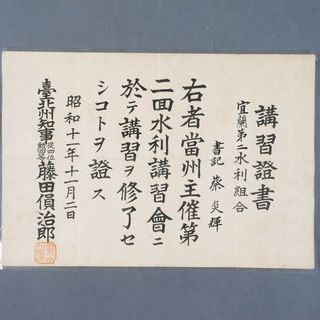 講習證書
宜蘭第二水利組合
書記 蔡炎輝
右者當州主催第
二回水利講習會ニ
於テ講習ヲ修了セ
シコトヲ證ス
昭和十一年十一月二日
臺北州知事從四位勳四等藤田傊治郎